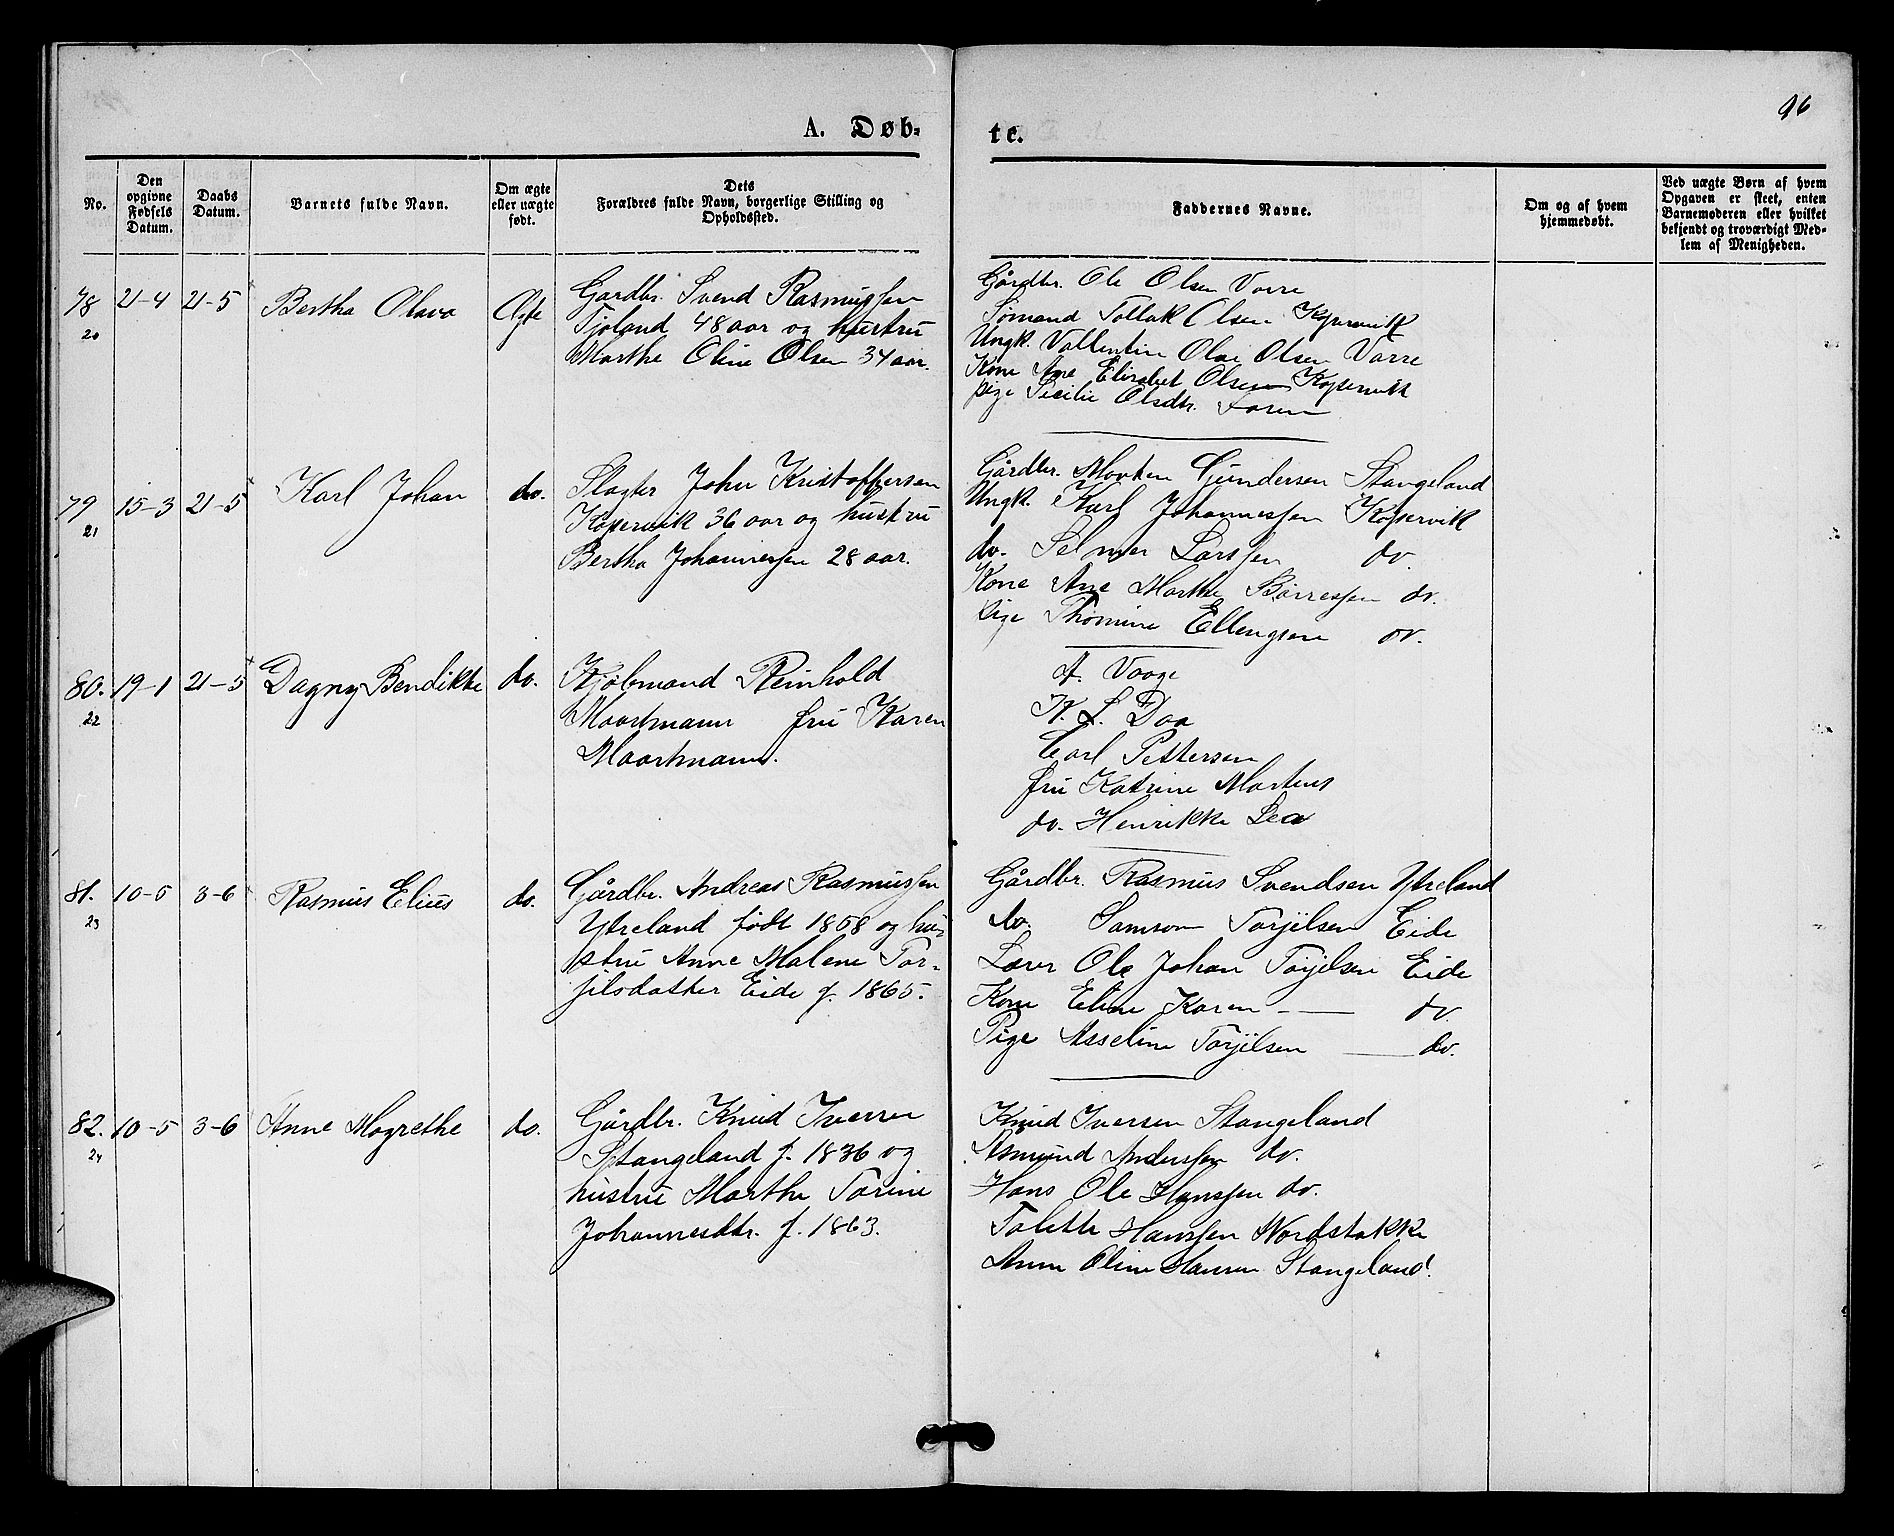 96
A. Døb-
te.
No.
Den opgivne Fødsels Datum.
Daabs Datum.
Barnets fulde Navn.
Om ægte eller uægte født.
Dets Forældres fulde Navn, borgerlige Stilling og Opholdssted.
Faddernes Navne.
Om og af hvem hjemmedøbt.
Ved uægte Børn af hvem Opgaven er skeet, enten Barnemoderen eller hvilket bekjendt og troværdigt Medlem af Menigheden.
78
20
21-4
21-5
Bertha Olava
Ægte
Gardbr. Svend Rasmussen
Tjoland 48 aar og hustru
Marthe Oline Olsen 34 aar.
Gårdbr. Ole Olsen Vorre
Sømand Tollak Olsen Kopervik
Ungk. Vallentin Olai Olsen Vorre
Kone Ane Elisabet Olsen Kopervik
pige Secilie Olsdtr.
79
21
15-3
21-5
Karl Johan
do.
Slagter John Kristoffersen
Kopervik 36 aar og hustru
Bertha Johannessen 28 aar.
Gårdbr. Morten Gundersen Stangeland
Ungk. Karl Johannessen Kopervik
do. Selmer Larssen do.
Kone Ane Marthe Børressen do.
pige Thomine Ellengsen do.
80.
22
19-1
21-5
Dagny Bendikte
do.
Kjøbmand Reinhold
Maartmann fru Karen
Maartmann.
A. Vaage
K. L. Daa
Carl Pettersen
fru Katrine Martens
do. Henrikke Lea
81.
23
10-5
3-6
Rasmus Elius
do.
Gårdbr. Andreas Rasmussen
Ytreland født 1858 og hu-
stru Anne Malene Tor-
jilsdatter Eide f. 1865.
Gårdbr. Rasmus Svendsen Ytreland
do. Samson Torjilsen Eide
Lærer Ole Johan Torjelsen Eide
Kone Eline Karen — do.
Pige Asseline Torjilsen — do.
82.
24
10-5
3-6
Anne Magrethe
do.
Gårdbr. Knud Iversen
Stangeland f. 1836 og
hustru Marthe Torine
Johannesdtr. f. 1863.
Knud Iversen Stangeland
Asmund Anderssen do.
Hans Ole Hanssen do.
Tolette Hanssen Nordstokke
Anne Oline Hansen Stangeland.